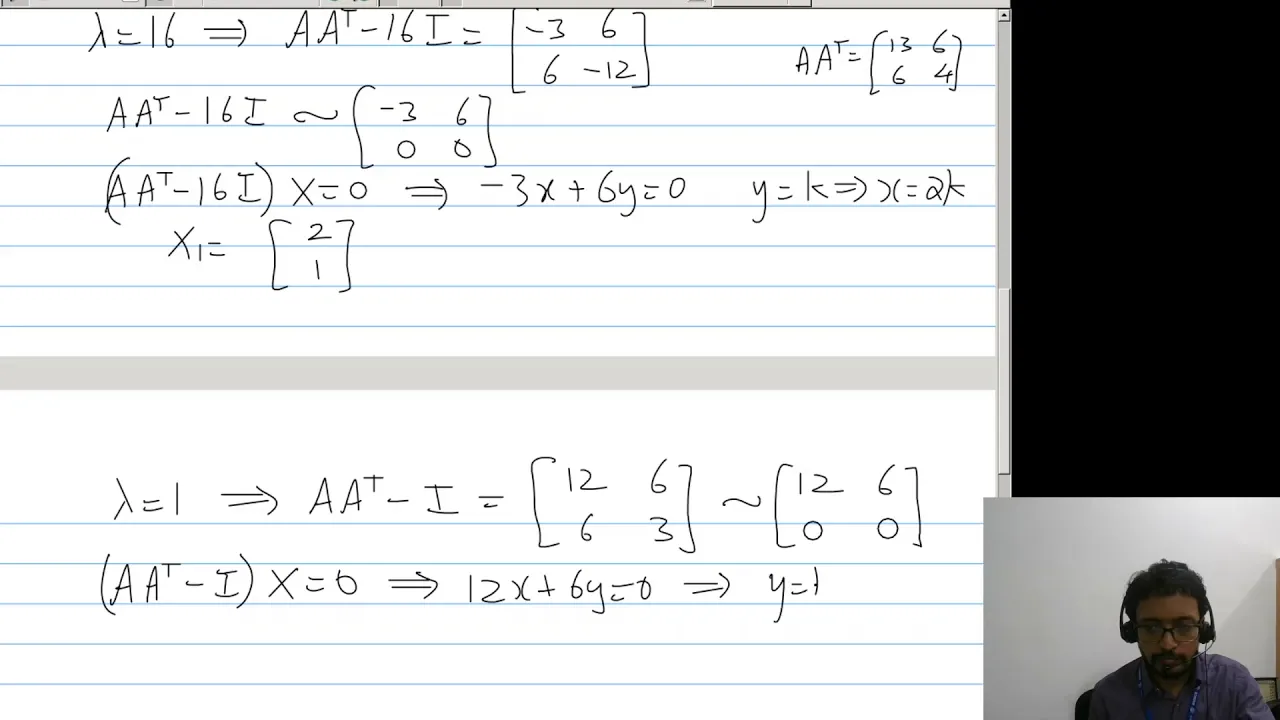 λ=16 ⟹ AAᵀ-16I = [-3 6; 6 -12]
AAᵀ = [13 6; 6 4]
AAᵀ-16I ~ [-3 6; 0 0]
(AAᵀ-16I) X=0 ⟹ -3x+6y=0 y=k⟹x=2k
X₁= [2; 1]
λ=1 ⟹ AAᵀ-I = [12 6; 6 3] ~ [12 6; 0 0]
(AAᵀ-I) X=0 ⟹ 12x+6y=0 ⟹ y=